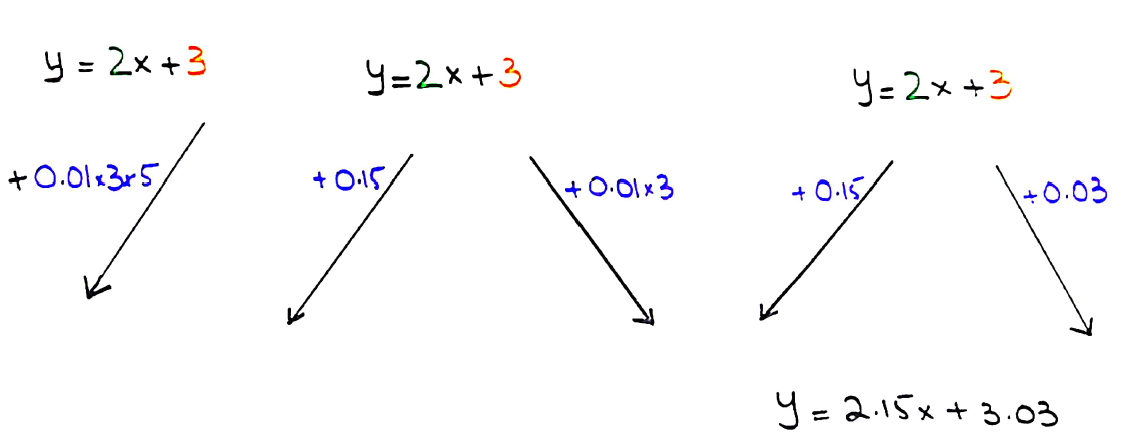 y = 2x + 3
+ 0.01x3x5
y = 2x + 3
+ 0.15
+ 0.01x3
y = 2x + 3
+ 0.15
+ 0.03
y = 2.15x + 3.03